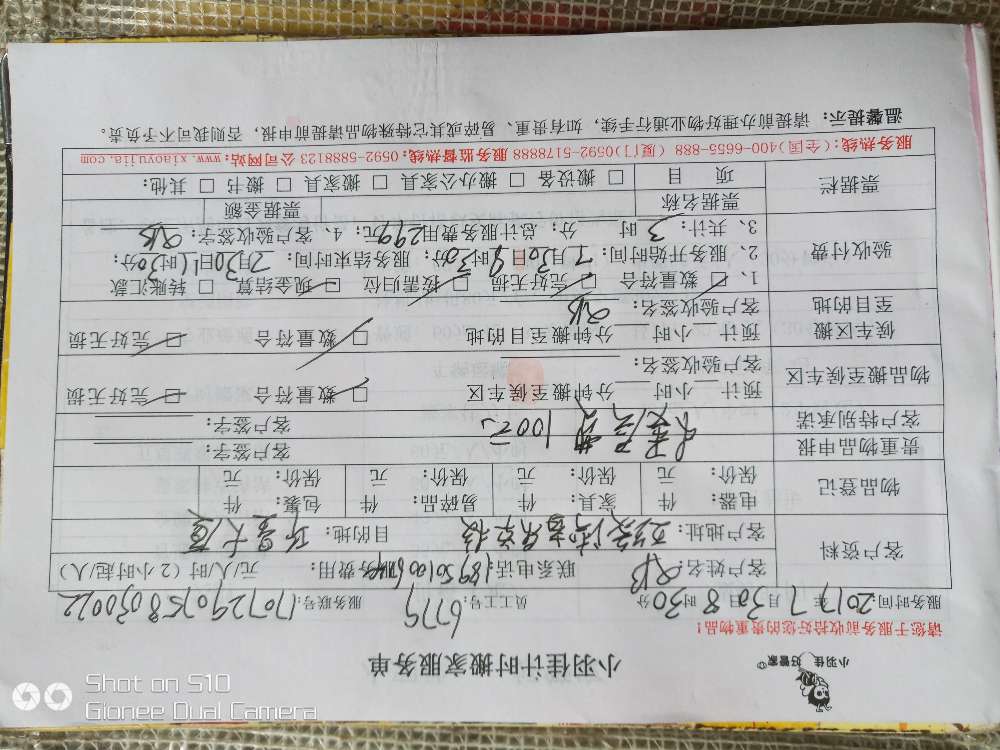 小羽佳 好管家
小羽佳计时搬家服务单
请您于服务前收拾好您的贵重物品!
服务时间: 2017年 7月 30日 8时 30分 员工工号: 6779 服务联号: 170729075803002
客户资料
客户姓名: 联系电话: 费用: 元/人/时(2小时起/人)
客户地址: 目的地:
物品登记
电器: 件 家具: 件 易碎品: 件 包装: 件
保价: 元 保价: 元 保价: 元 保价: 元
贵重物品申报 客户签字:
客户特别承诺 100元 客户签字:
物品搬至候车区
预计 小时 分钟搬至候车区 □ 数量符合 □ 完好无损
客户验收签名:
候车区搬至目的地
预计 小时 分钟搬至目的地 □ 数量符合 □ 完好无损
客户验收签名:
验收付费
1、□ 数量符合 □ 完好无损 □ 按需归位 □ 现金结算 □ 转账汇款
2、服务开始时间: 7月30日 8时30分; 服务结束时间: 7月30日11时30分;
3、共计: 3时 分; 总计服务费用299元; 4、客户验收签字:
票据栏
票据名称 票据金额
项目 □ 搬设备 □ 搬办公家具 □ 搬家具 □ 搬书 □ 其他:
服务热线:(全国)400-6655-888 (厦门)0592-5178888 服务监督热线: 0592-5888123 公司网站: www.xiaoyujia.com
温馨提示: 请提前办理好物业通行手续, 如有贵重、易碎或其它特殊物品请提前申报, 否则我司不予负责。
Shot on S10
Gionee Dual Camera